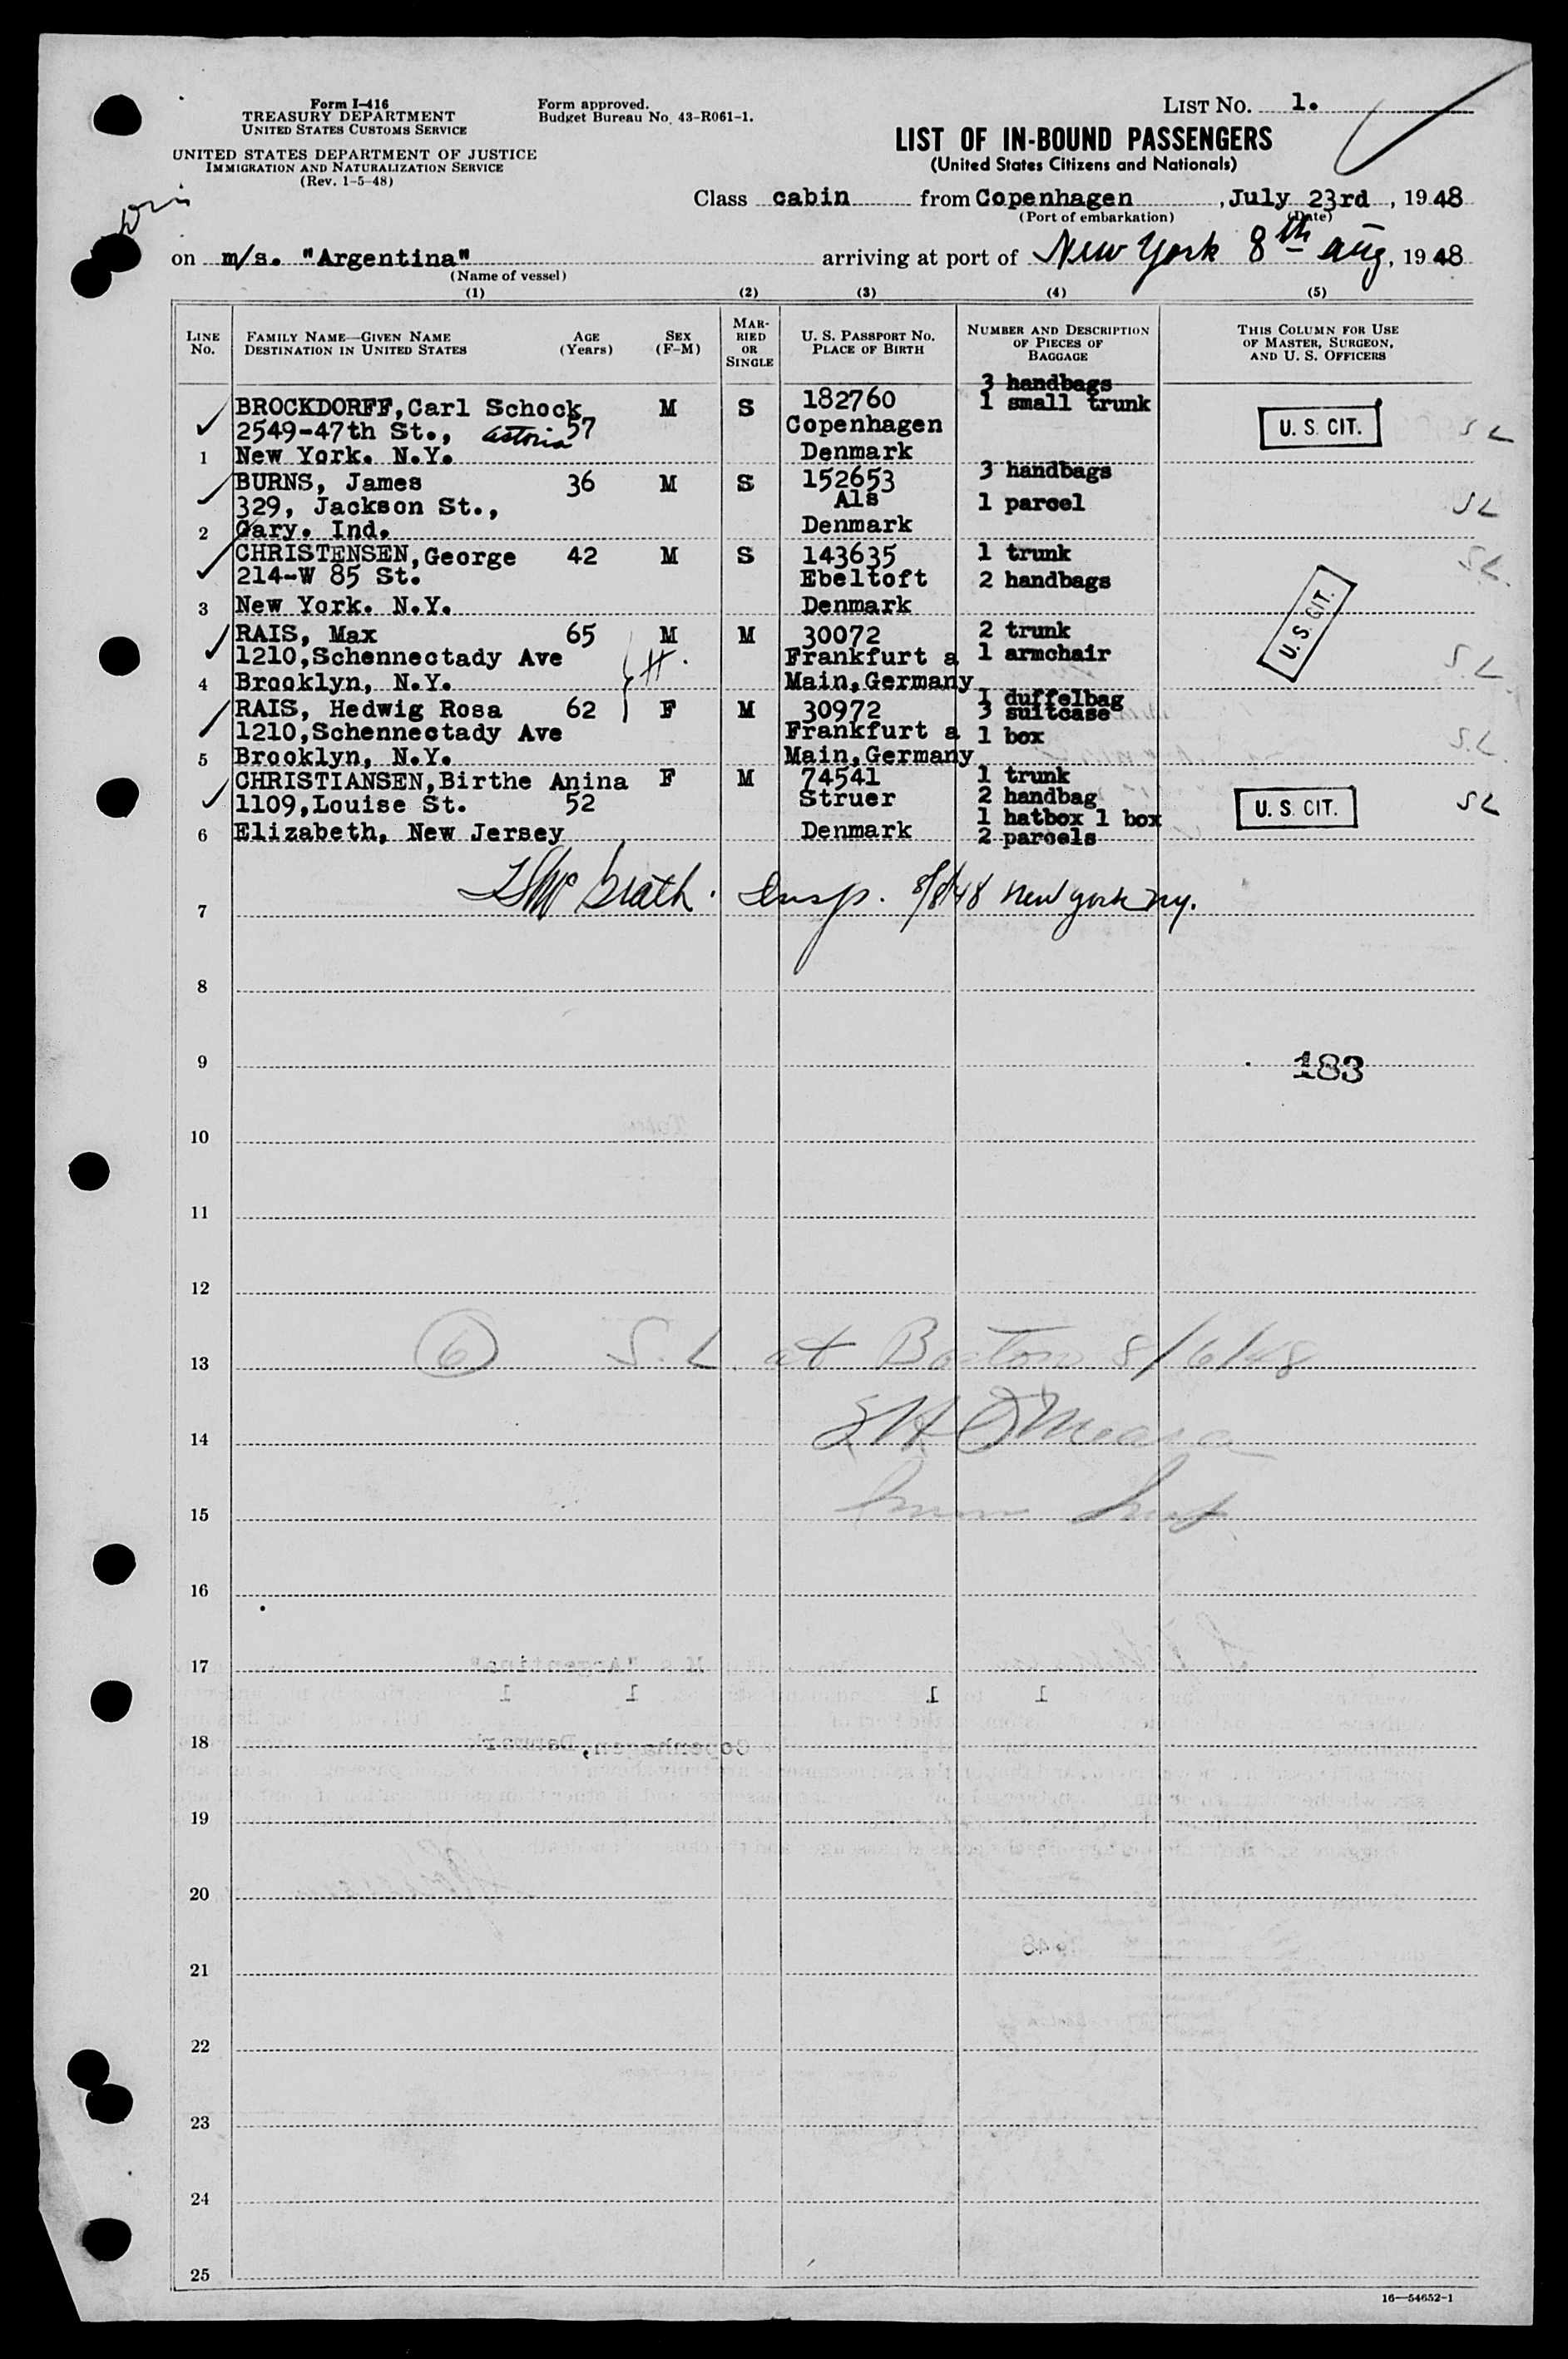 Form I-416
TREASURY DEPARTMENT
UNITED STATES CUSTOMS SERVICE
UNITED STATES DEPARTMENT OF JUSTICE
IMMIGRATION AND NATURALIZATION SERVICE
(Rev. 1-5-48)
Form approved.
Budget Bureau No. 43-R061-1.
LIST NO. 1.
LIST OF IN-BOUND PASSENGERS
(United States Citizens and Nationals)
Class cabin from Copenhagen, July 23rd, 1948
(Port of embarkation) (Date)
on m/s. "Argentina" arriving at port of New York 8th aug, 1948
(Name of vessel)
(1) (2) (3) (4) (5)
LINE No. FAMILY NAME—GIVEN NAME DESTINATION IN UNITED STATES AGE (Years) SEX (F-M) MARRIED OR SINGLE U. S. PASSPORT NO. PLACE OF BIRTH NUMBER AND DESCRIPTION OF PIECES OF BAGGAGE THIS COLUMN FOR USE OF MASTER, SURGEON, AND U. S. OFFICERS
3 handbags
BROCKDORFF, Carl Schock M S 182760 1 small trunk
2549-47th St., astoria 57 Copenhagen U. S. CIT. S L
1 New York. N.Y. Denmark
BURNS, James 36 M S 152653 3 handbags
329, Jackson St., Als 1 parcel S L
2 Gary. Ind. Denmark
CHRISTENSEN, George 42 M S 143635 1 trunk S.L.
214-W 85 St. Ebeltoft 2 handbags
3 New York. N.Y. Denmark
RAIS, Max 65 M M 30072 2 trunk U. S. CIT.
1210, Schennectady Ave H. Frankfurt a 1 armchair S.L.
4 Brooklyn, N.Y. Main, Germany
1 duffelbag
RAIS, Hedwig Rosa 62 F M 30972 3 suitcase
1210, Schennectady Ave Frankfurt a 1 box S.L.
5 Brooklyn, N.Y. Main, Germany
CHRISTIANSEN, Birthe Anina F M 74541 1 trunk
1109, Louise St. 52 Struer 2 handbag U. S. CIT. S L
1 hatbox 1 box
6 Elizabeth, New Jersey Denmark 2 parcels
7 McGrath. Insp. 8/8/48 New York Ny.
8
9 183
10
11
12
13 6 S. L. at Boston 8/6/48
14 O'Meara
15 Imm Insp
16
17
18
19
20
21
22
23
24
25
16—54652-1